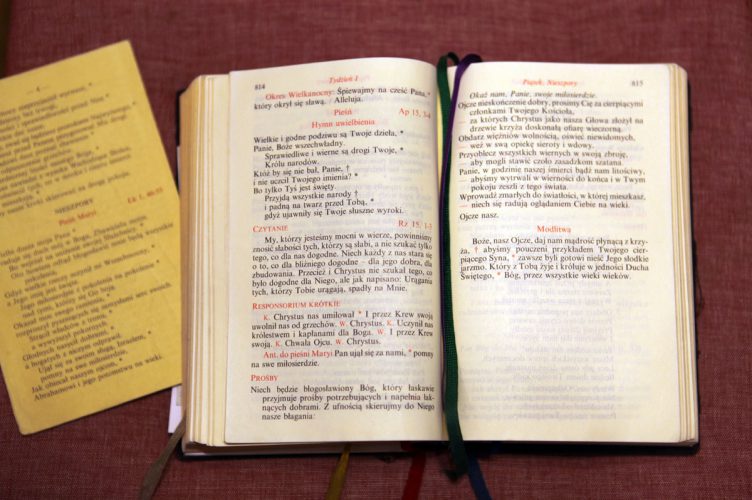 — 4 —
NIESZPORY
Pieśń Maryi
Łk 1, 46-55
Głodnych nasycił dobrami, *
a bogatych z niczym odprawił.
Ujął się za swoim sługą, Izraelem, *
pomny na swe miłosierdzie,
Jak obiecał naszym ojcom, *
Abrahamowi i jego potomstwu na wieki.
814
Tydzień I
Okres Wielkanocny: Śpiewajmy na cześć Pana, *
który okrył się sławą. Alleluja.
Pieśń
Ap 15, 3-4
Hymn uwielbienia
Wielkie i godne podziwu są Twoje dzieła, *
Panie, Boże wszechwładny.
Sprawiedliwe i wierne są drogi Twoje, *
Królu narodów.
Któż by się nie bał, Panie, †
i nie uczcił Twojego imienia? *
Bo tylko Tyś jest święty.
Przyjdą wszystkie narody †
i padną na twarz przed Tobą, *
gdyż ujawniły się Twoje słuszne wyroki.
CZYTANIE
Rz 15, 1-3
My, którzy jesteśmy mocni w wierze, powinniśmy
znosić słabości tych, którzy są słabi, a nie szukać tylko
tego, co dla nas dogodne. Niech każdy z nas stara się
o to, co dla bliźniego dogodne – dla jego dobra, dla
zbudowania. Przecież i Chrystus nie szukał tego, co
było dogodne dla Niego, ale jak napisano: Urągania
tych, którzy Tobie urągają, spadły na Mnie.
RESPONSORIUM KRÓTKIE
K. Chrystus nas umiłował * I przez Krew swoją
uwolnił nas od grzechów. W. Chrystus. K. Uczynił nas
królestwem i kapłanami dla Boga. W. I przez Krew
swoją. K. Chwała Ojcu. W. Chrystus.
Ant. do pieśni Maryi Pan ujął się za nami, * pomny
na swe miłosierdzie.
PROŚBY
Niech będzie błogosławiony Bóg, który łaskawie
przyjmuje prośby potrzebujących i napełnia łak-
nących dobrami. Z ufnością skierujmy do Niego
nasze błagania:
Piątek. Nieszpory
815
Okaż nam, Panie, swoje miłosierdzie.
Ojcze nieskończenie dobry, prosimy Cię za cierpiącymi
członkami Twojego Kościoła,
— za których Chrystus jako nasza Głowa złożył na
drzewie krzyża doskonałą ofiarę wieczorną.
Obdarz więźniów wolnością, oświeć niewidomych,
— weź w swą opiekę sieroty i wdowy.
Przyoblecz wszystkich wiernych w swoją zbroję,
— aby mogli stawić czoło zasadzkom szatana.
Panie, w godzinie naszej śmierci bądź nam litościwy,
— abyśmy wytrwali w wierności do końca i w Twym
pokoju zeszli z tego świata.
Wprowadź zmarłych do światłości, w której mieszkasz,
— niech się radują oglądaniem Ciebie na wieki.
Ojcze nasz.
Modlitwa
Boże, nasz Ojcze, daj nam mądrość płynącą z krzy-
ża, † abyśmy pouczeni przykładem Twojego cier-
piącego Syna, * zawsze byli gotowi nieść Jego słodkie
jarzmo. Który z Tobą żyje i króluje w jedności Ducha
Świętego, * Bóg, przez wszystkie wieki wieków.